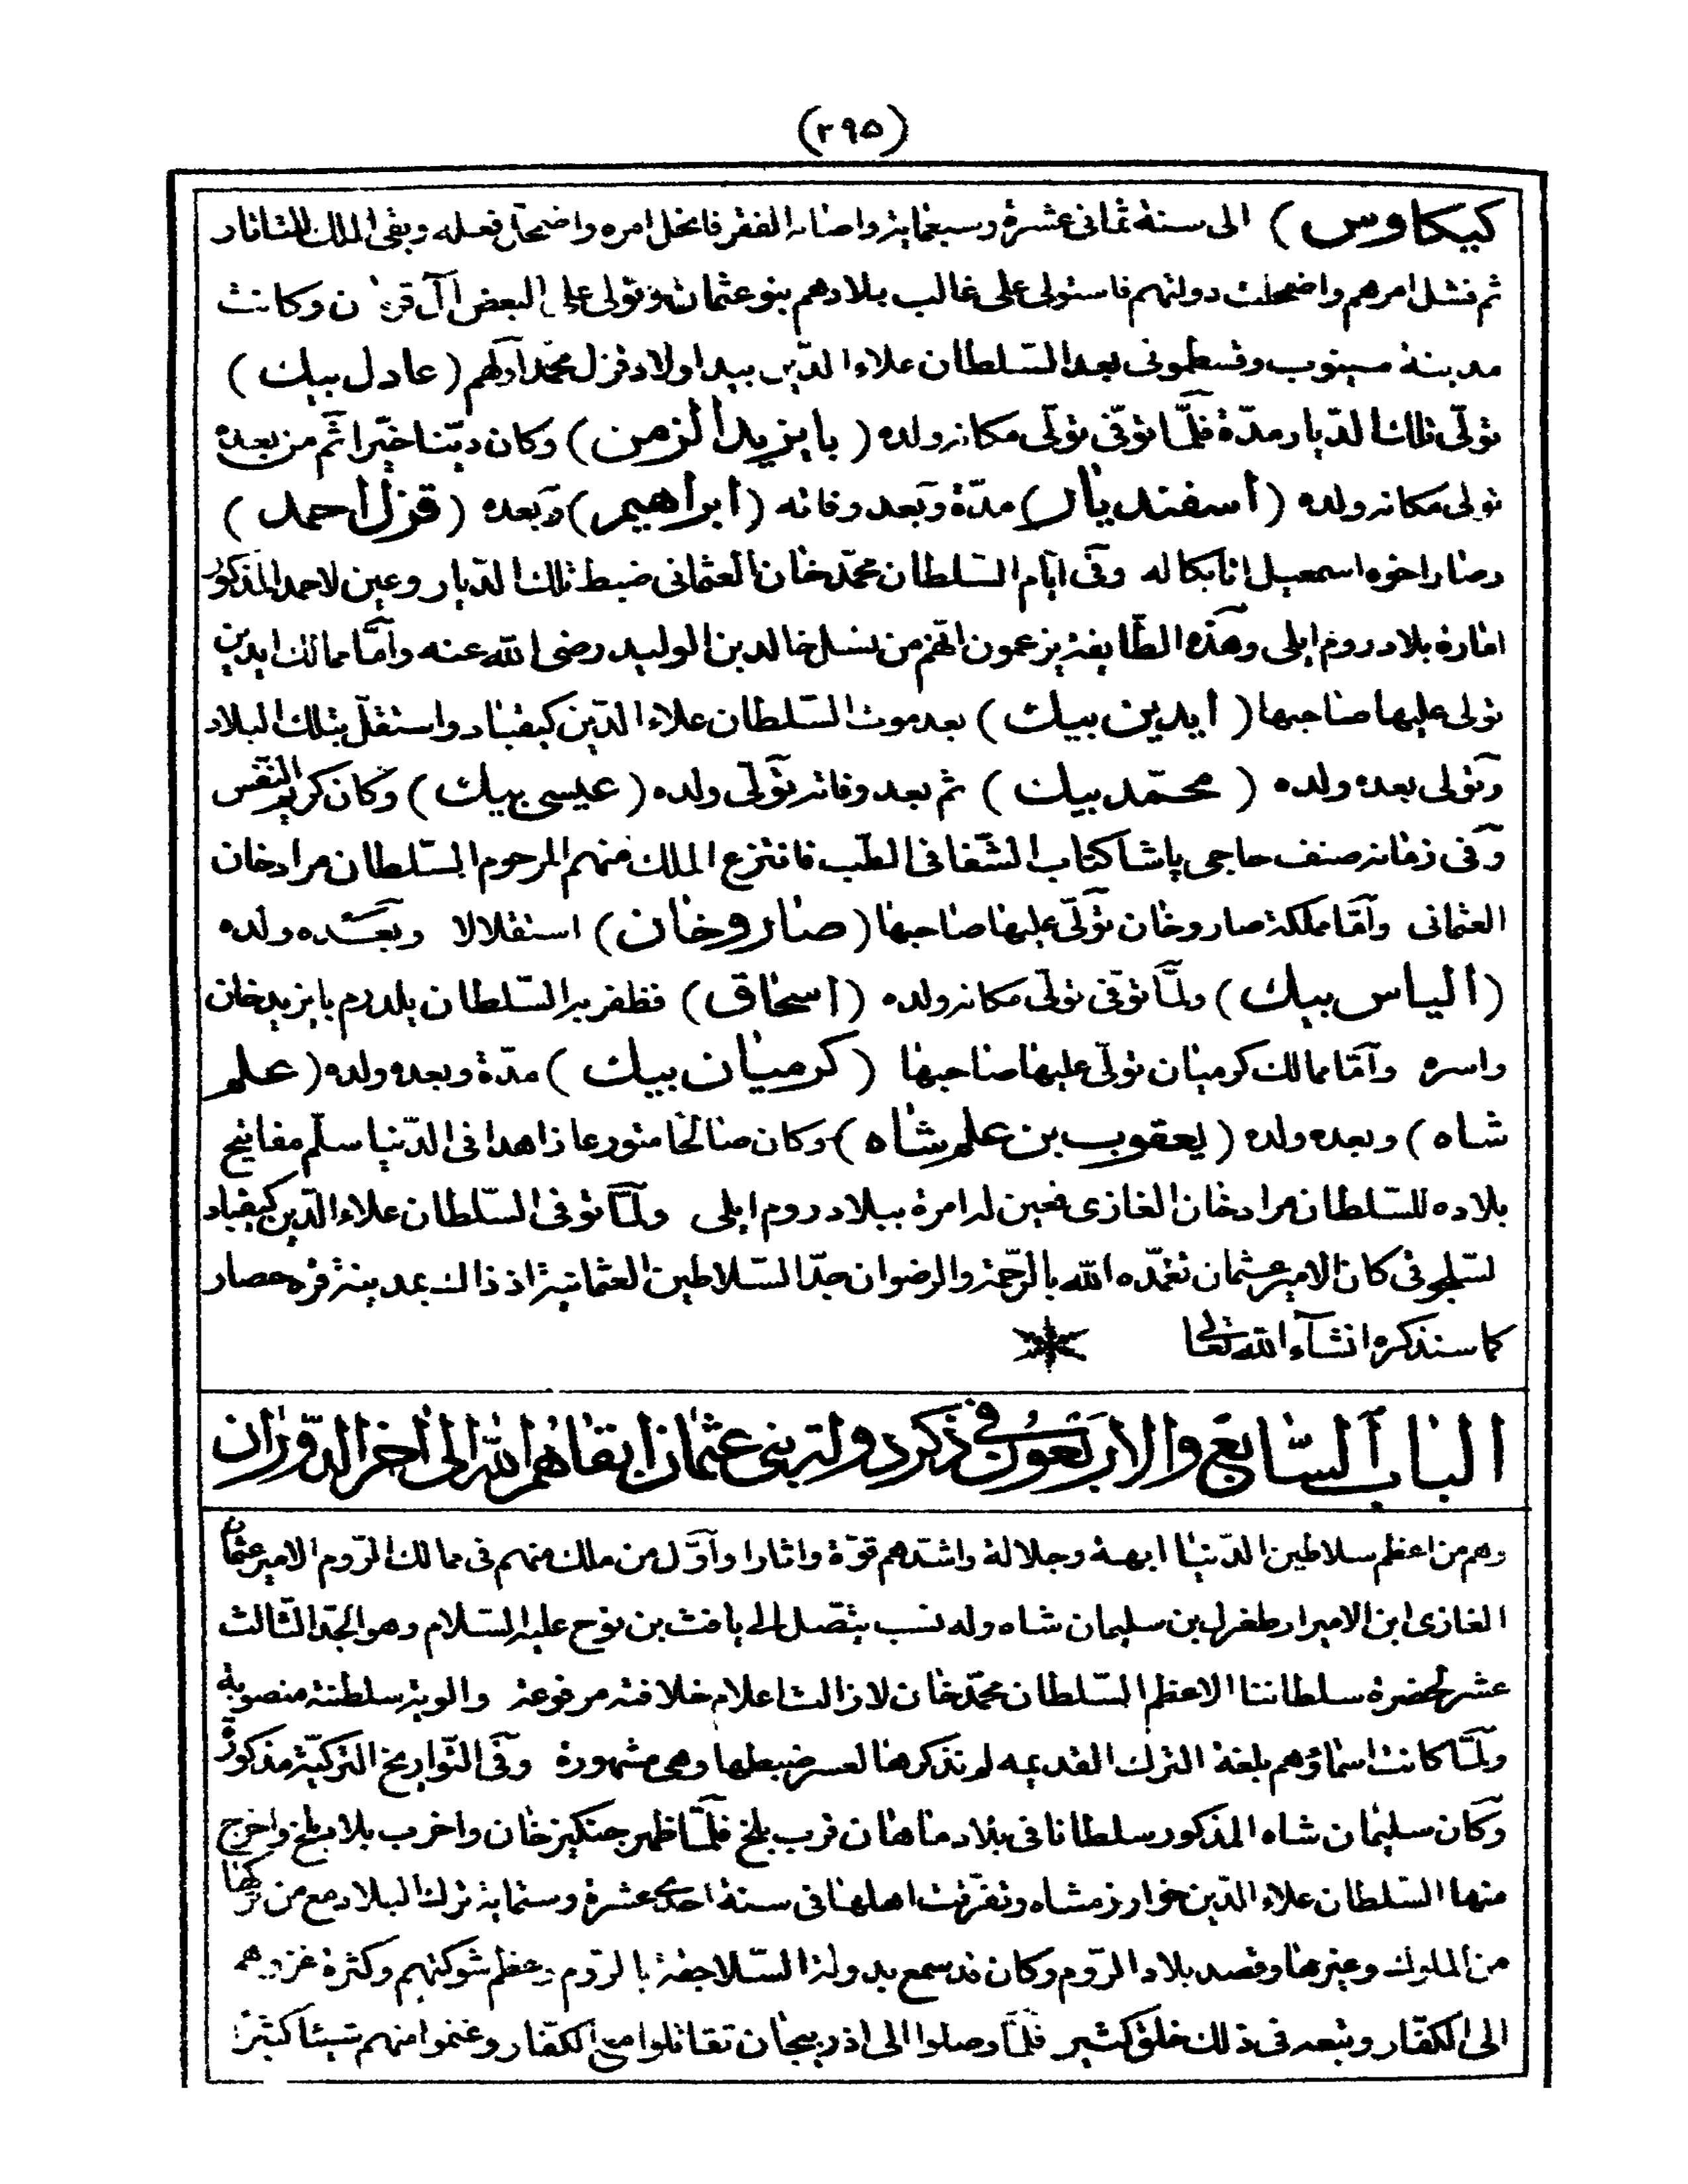 (٢٩٥)
كيكاوس) الى سنة ثمانى عشرة وسبعماية واصابه الفقر فانحل امره واضمحل فعله وبقى الملك للتاتار
ثم فشل امرهم واضمحلت دولتهم فاستولى على غالب بلادهم بنو عثمان وتولى على البعض آل ن وكانت
مدينة سينوب وقسطمونى بعد السّلطان علاء الدّين بيد اولاد قزل محمّد اولهم (عادل بيك)
تولّى تلك الدّيار مدّة فلمّا توفّى تولّى مكانه ولده (بايزيد الزمن) وكان ديّنا خيّرا ثمّ من بعده
تولى مكانه ولده (اسفنديار) مدّة وبعد وفاته (ابراهيم) وبعده (قزل احمد)
وصار اخوه اسمعيل اتابكا له وفى ايّام السّلطان محمّد خان العثمانى ضبط تلك الدّيار وعين لاحمد المذكور
امارة بلاد روم ايلى وهذه الطّايفة يزعمون انّهم من نسل خالد بن الوليد رضى الله عنه وامّا ممالك ايدين
تولى عليها صاحبها (ايدين بيك) بعد موت السّلطان علاء الدّين كيقباد واستقلّ بتلك البلاد
وتولى بعده ولده (محمّد بيك) ثم بعد وفاته تولّى ولده (عيسى بيك) وكان كريم النّفس
وفى زمانه صنف حاجى پاشا كتاب الشّفا فى الطّب فانتزع الملك منهم المرحوم السّلطان مراد خان
العثمانى وامّا مملكة صاروخان تولّى عليها صاحبها (صاروخان) استقلالا وبعده ولده
(الياس بيك) ولمّا توفّى تولّى مكانه ولده (اسحاق) فظفر به السّلطان يلدرم بايزيد خان
واسره وامّا ممالك كرميان تولّى عليها صاحبها (كرميان بيك) مدّة وبعده ولده (علم
شاه) وبعده ولده (يعقوب بن علم شاه) وكان صالحا متورعا زاهدا فى الدّنيا سلّم مفاتيح
بلاده للسّلطان مراد خان الغازى فعين له امرة ببلاد روم ايلى ولمّا توفى السّلطان علاء الدّين كيقباد
لسّلجوقى كان الامير عثمان تغمّده الله بالرّحمة والرضوان جدّ السّلاطين العثمانية اذ ذاك بمدينة قره حصار
كما سنذكره انشآء الله تعالى
الباب السّابع والاربعون فى ذكر دولة بنى عثمان ابقاهم الله الى آخر الدّوران
وهم من اعظم سلاطين الدّنيا ابهة وجلالة واشدّهم قوّة واثارا واوّل من ملك منهم فى ممالك الرّوم الامير عثمان
الغازى ابن الامير ارطغرل بن سليمان شاه وله نسب يتّصل الى يافث بن نوح عليه السّلام وهو الجدّ الثّالث
عشر لحضرة سلطاننا الاعظم السّلطان محمّد خان لا زالت اعلام خلافته مرفوعة والوية سلطنته منصوبة
ولمّا كانت اسماؤهم بلغة الترك القديمه لم نذكرها لعسر ضبطها وهى مشهورة وفى التّواريخ التركيّة مذكورة
وكان سليمان شاه المذكور سلطانا فى بلاد ماهان قرب بلخ فلمّا ظهر جنكيز خان واخرب بلاد بلخ واخرج
منها السّلطان علاء الدّين خوارزمشاه وتفرّقت اهلها فى سنة احدى عشرة وستماية ترك البلاد مع من تركها
من الملوك وغيرها وقصد بلاد الرّوم وكان قد سمع بدولة السّلاجقة بالرّوم وعظم شوكتهم وكثرة غزوهم
الى الكفّار وتبعه فى ذلك خلق كثير فلمّا وصلوا الى اذربيجان تقاتلوا مع الكفّار وغنموا منهم شيئا كثيرا